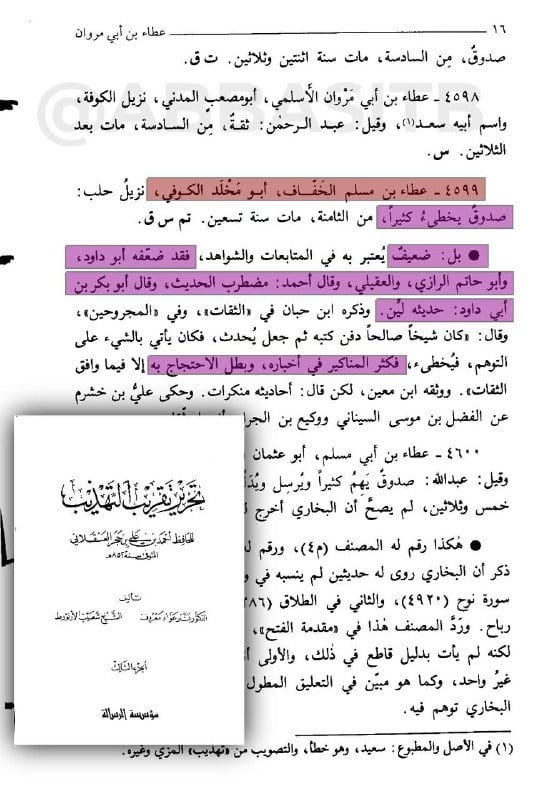 ١٦
عطاء بن أبي مروان
صدوقٌ، مِن السادسة، مات سنة اثنتين وثلاثين. ت ق.
٤٥٩٨ ـ عطاء بن أبي مَرْوان الأَسلمي، أبومصعبٍ المدني، نزيل الكوفة،
واسم أبيه سعد(١)، وقيل: عبد الرحمٰن: ثقةٌ، مِن السادسة، مات بعد
الثلاثين. س.
٤٥٩٩ ـ عطاء بن مسلم الخَفَّاف، أبو مَخْلَد الكوفي، نزيلُ حلب:
صدوقٌ يخطىءُ كثيراً، من الثامنة، مات سنة تسعين. تم س ق.
● بل: ضعيفٌ يُعتبر به في المتابعات والشواهد، فقد ضعّفه أبو داود،
وأبو حاتم الرازي، والعقيلي، وقال أحمد: مضطرب الحديث، وقال أبو بكر بن
أبي داود: حديثه ليِّن. وذكره ابن حبان في «الثقات»، وفي «المجروحين»،
وقال: «كان شيخاً صالحاً دفن كتبه ثم جعل يُحدث، فكان يأتي بالشيء على
التوهم، فيُخطىء، فكثر المناكير في أخباره، وبطل الاحتجاج به إلا فيما وافق
الثقات». ووثقه ابن معين، لكن قال: أحاديثه منكرات. وحكى عليُّ بن خشرم
عن الفضل بن موسى السيناني ووكيع بن الجراح
٤٦٠٠ ـ عطاء بن أبي مسلم، أبو عثمان
وقيل: عبدالله: صدوقٌ يَهِمُ كثيراً ويُرسِل
خمس وثلاثين، لم يصحَّ أن البخاري أخرج
● هٰكذا رقم له المصنف (م٤)، ورقم له
ذكر أن البخاري روى له حديثين لم ينسبه في
سورة نوح (٤٩٢٠)، والثاني في الطلاق
رباح. وردَّ المصنف هٰذا في «مقدمة الفتح»،
لكنه لم يأت بدليل قاطع في ذٰلك، والأولى
غيرُ واحد، وكما هو مبيّن في التعليق المطول
البخاري توهم فيه.
(١) في الأصل والمطبوع: سعيد، وهو خطأ، والتصويب من «تهذيب» المزي وغيره.
تحرير تقريب التهذيب
للحافظ أحمد بن علي بن حجر العسقلاني
المتوفى سنة ٨٥٢هـ
تأليف
الدكتور بشار عواد معروف الشيخ شعيب الأرنؤوط
الجزء الثالث
مؤسسة الرسالة